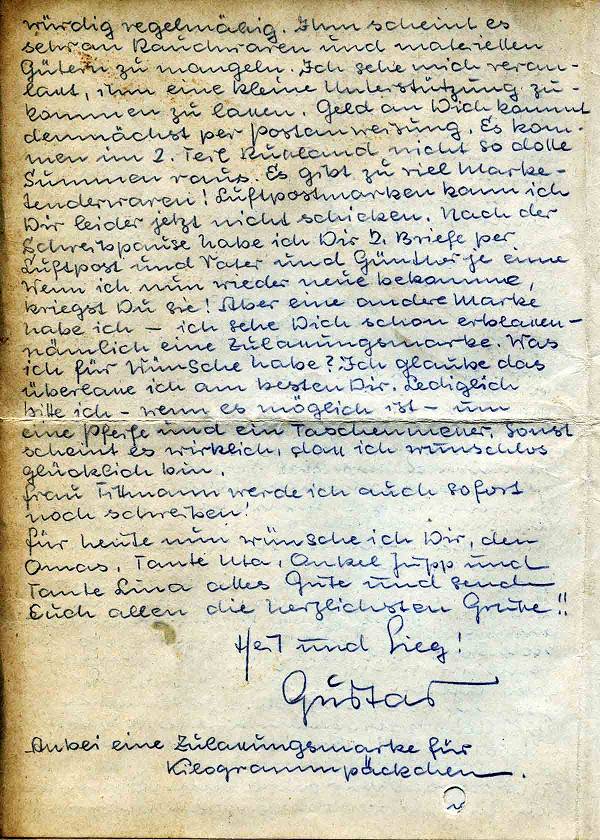 würdig regelmäßig. Ihm scheint es
sehr an Rauchwaren und materiellen
Gütern zu mangeln. Ich sehe mich veran-
laßt, ihm eine kleine Unterstützung zu-
kommen zu lassen. Geld an Dich kommt
demnächst per Postanweisung. Es kom-
men im 2. Teil Rußland nicht so dolle
Summen raus. Es gibt zu viel Marke-
tenderwaren! Luftpostmarken kann ich
Dir leider jetzt nicht schicken. Nach der
Schreibpause habe ich Dir 2. Briefe per
Luftpost und Vater und Günther je einne
Wenn ich nun wieder neue bekomme,
kriegst Du sie! Aber eine andere Marke
habe ich – ich sehe Dich schon erblassen –
nämlich eine Zulassungsmarke. Was
ich für Wünsche habe? Ich glaube das
überlasse ich am besten Dir. Lediglich
bitte ich – wenn es möglich ist – um
eine Pfeife und ein Taschenmesser. Sonst
scheint es wirklich, daß ich wunschlos
glücklich bin.
Frau Tittmann werde ich auch sofort
noch schreiben!
Für heute nun wünsche ich Dir, den
Omas, Tante Uta, Onkel Jupp und
Tante Lina alles Gute und sende
Euch allen die herzlichsten Grüße!!
Heil und Sieg!
Gustav
Anbei eine Zulassungsmarke für
Kilogrammpäckchen.